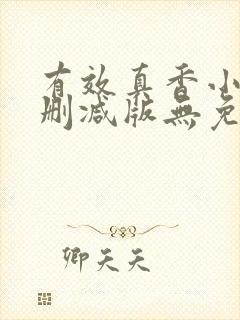 有效真香小
删减版無免
卿天天